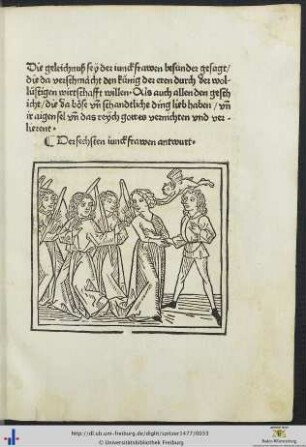 Die geleichnuß sey der iunckfrawen besunder gesagt/
die da verschmächt den künig der eren durch der wol-
lüstigen wirtschafft willen · Als auch allen den gesch
icht/die da böse vn̄ schandtliche ding lieb haben/vn̄
ir aigen sel vn̄ das reych gottes vernichten vnd ver-
lierent·
Der sechsten iunckfrawen antwurt·
http://dl.ub.uni-freiburg.de/diglit/spitzer1477/0033
© Universitätsbibliothek Freiburg
Baden-Württemberg